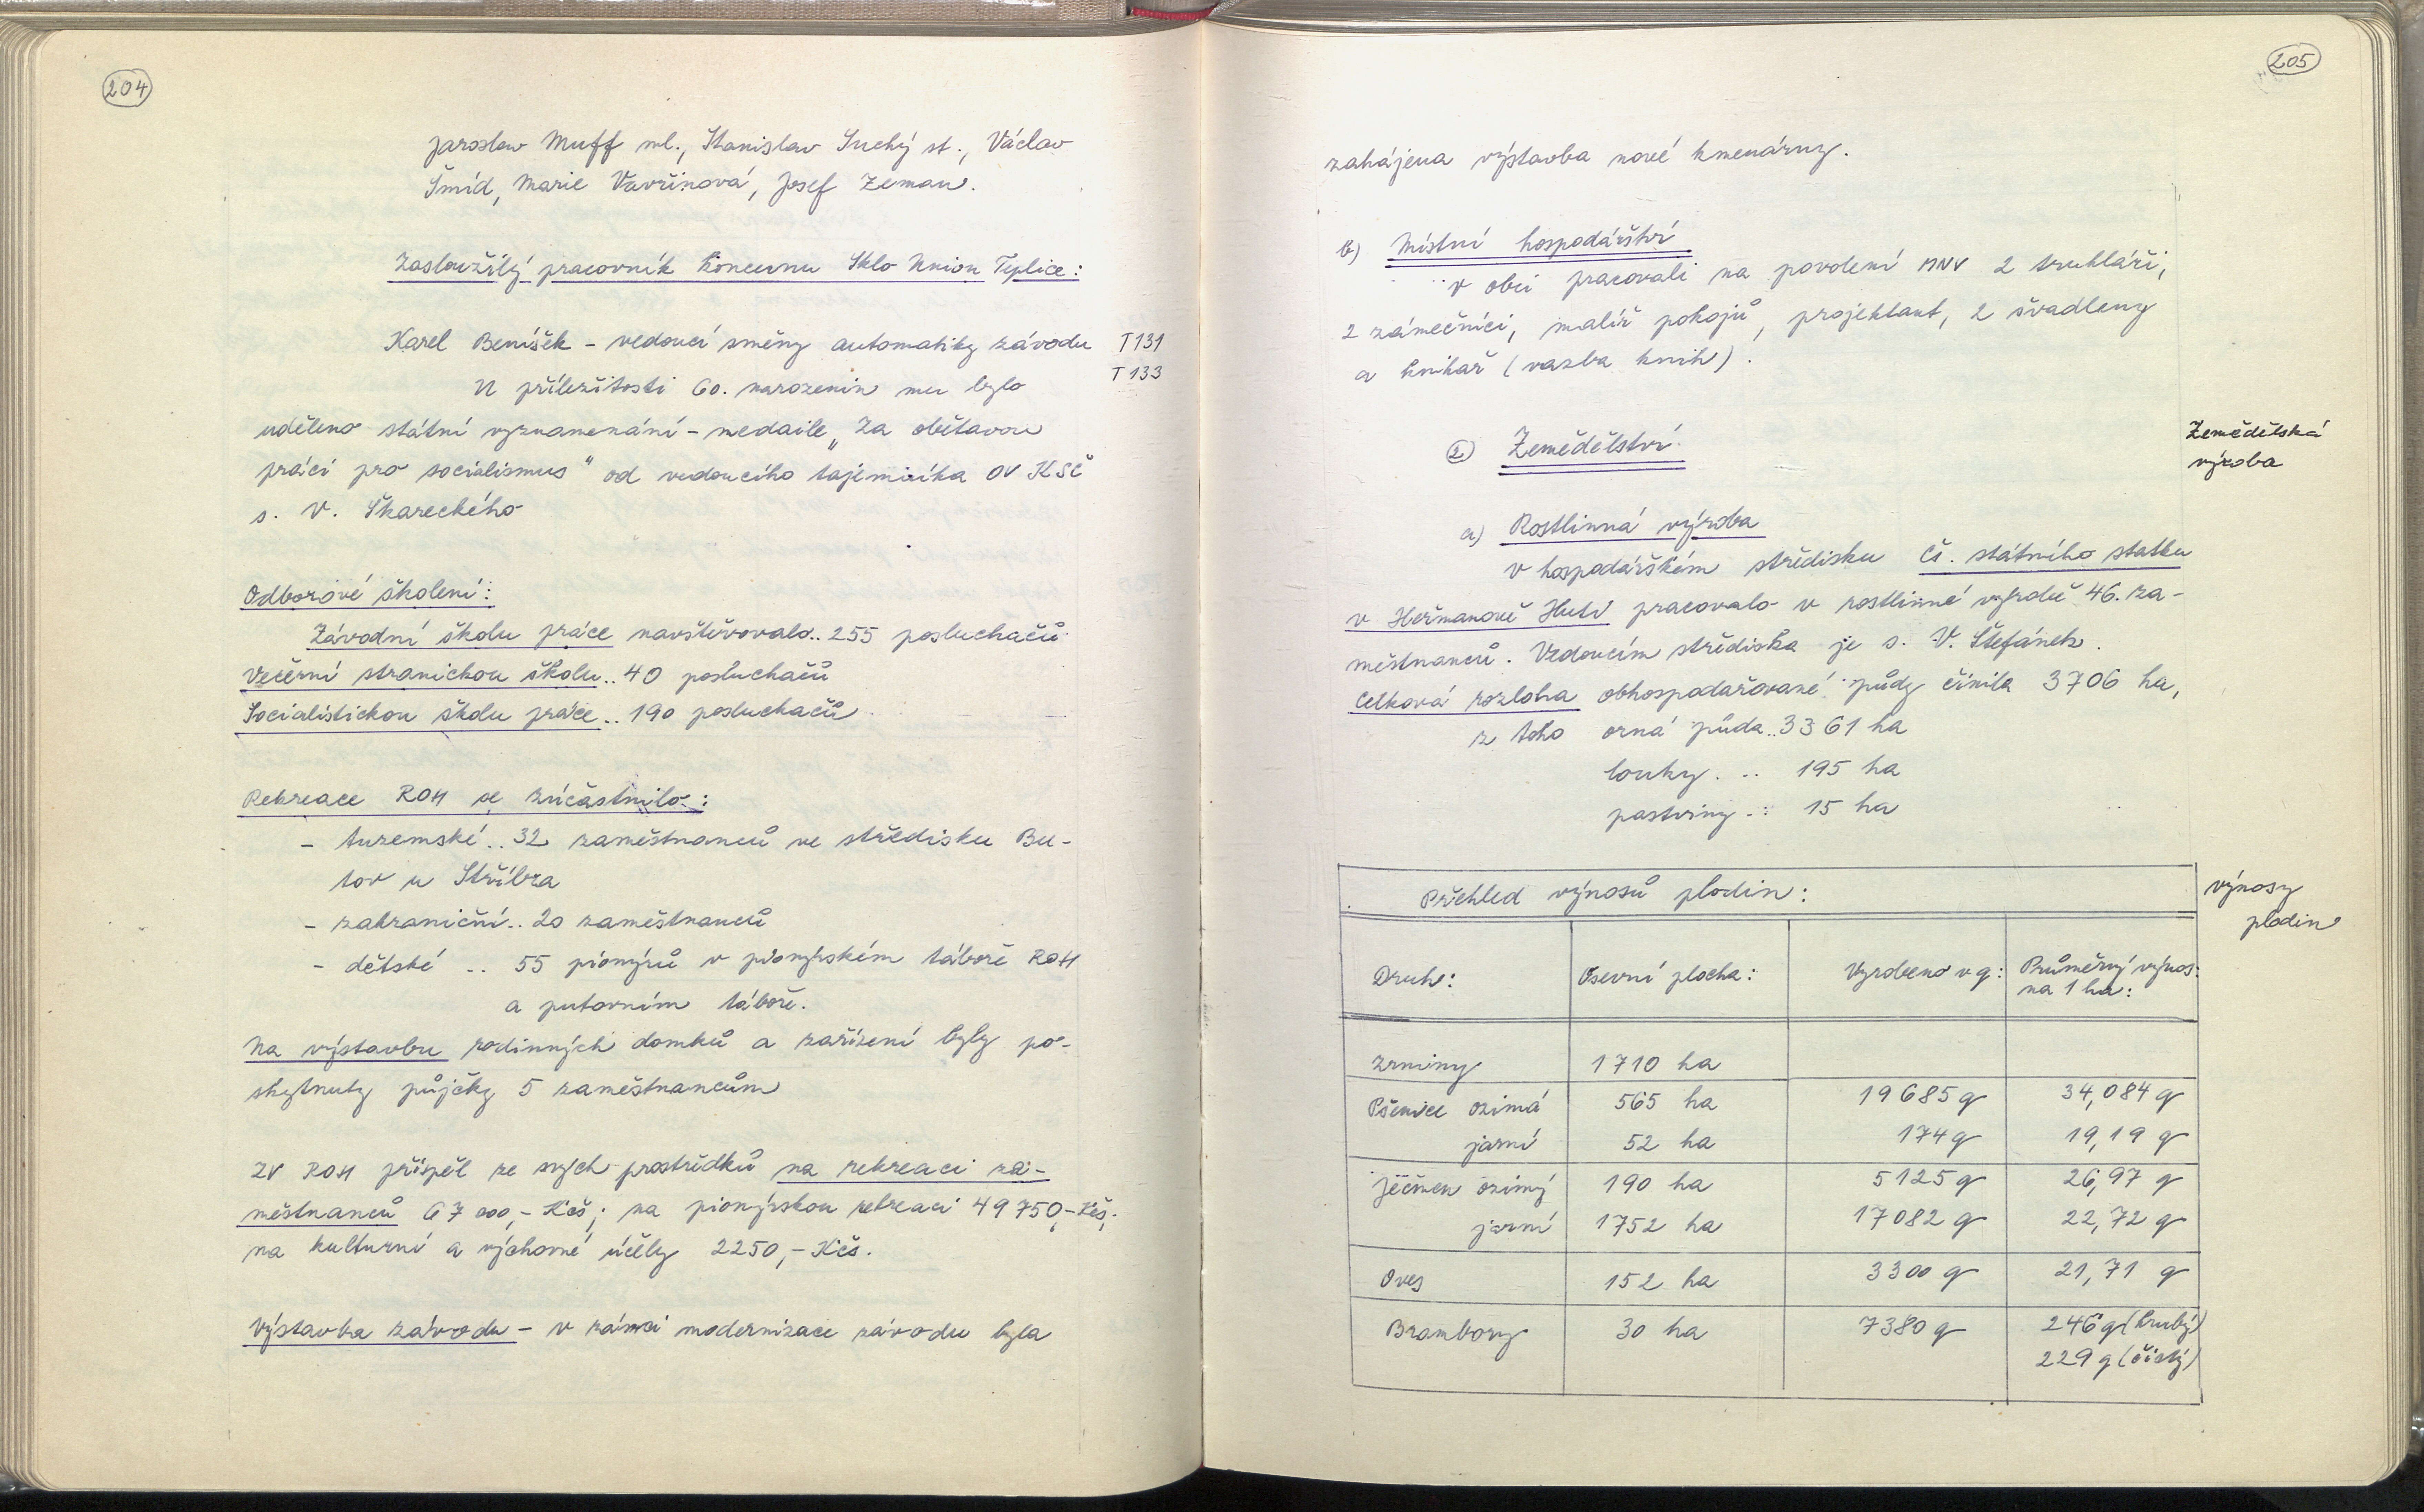 204
Jaroslav Muff ml., Stanislav Suchý st., Václav
Šmíd, Marie Vavřinová, Josef Zeman.
Zasloužilý pracovník koncernu Sklo Union Teplice:
Karel Beníšek - vedoucí směny automatiky závodu T131
U příležitosti 60. narozenin mu bylo T133
uděleno státní vyznamenání - medaile „Za obětavou
práci pro socialismus" od vedoucího tajemníka OV KSČ
s. V. Škareckého
Odborové školení:
Závodní školu práce navštěvovalo.. 255 posluchačů
Večerní stranickou školu.. 40 posluchačů
Socialistickou školu práce.. 190 posluchačů
Rekreace ROH se zúčastnilo:
- tuzemské.. 32 zaměstnanců ve středisku Bu-
tov u Stříbra
- zahraniční.. 20 zaměstnanců
- dětské .. 55 pionýrů v pionýrském táboře ROH
a putovním táboře.
Na výstavbu rodinných domků a zařízení byly po-
skytnuty půjčky 5 zaměstnancům
ZV ROH přispěl ze svých prostředků na rekreaci za-
městnanců 67 000,- Kčs; na pionýrskou rekreaci 49 750,- Kčs;
na kulturní a výchovné účely 2250,- Kčs.
Výstavba závodu - v rámci modernizace závodu byla
205
zahájena výstavba nové kmenárny.
b) Místní hospodářství
v obci pracovali na povolení MNV 2 truhláři,
2 zámečníci, malíř pokojů, projektant, 2 švadleny
a knihař (vazba knih).
2) Zemědělství
Zemědělská
výroba
a) Rostlinná výroba
V hospodářském středisku Čs. státního statku
v Heřmanově Huti pracovalo v rostlinné výrobě 46. za-
městnanců. Vedoucím střediska je s. V. Štefánek.
Celková rozloha obhospodařované půdy činila 3706 ha,
z toho orná půda.. 3361 ha
louky. .. 195 ha
pastviny .. 15 ha
Přehled výnosů plodin:
výnosy
plodin
Druh: Osevní plocha: Vyrobeno v q: Průměrný výnos:
na 1 ha:
Zrniny 1710 ha
Pšenice ozimá 565 ha 19685 q 34,084 q
jarní 52 ha 174 q 19,19 q
Ječmen ozimý 190 ha 5125 q 26,97 q
jarní 1752 ha 17082 q 22,72 q
Oves 152 ha 3300 q 21,71 q
Brambory 30 ha 7380 q 246 q (hrubý)
229 q (čistý)